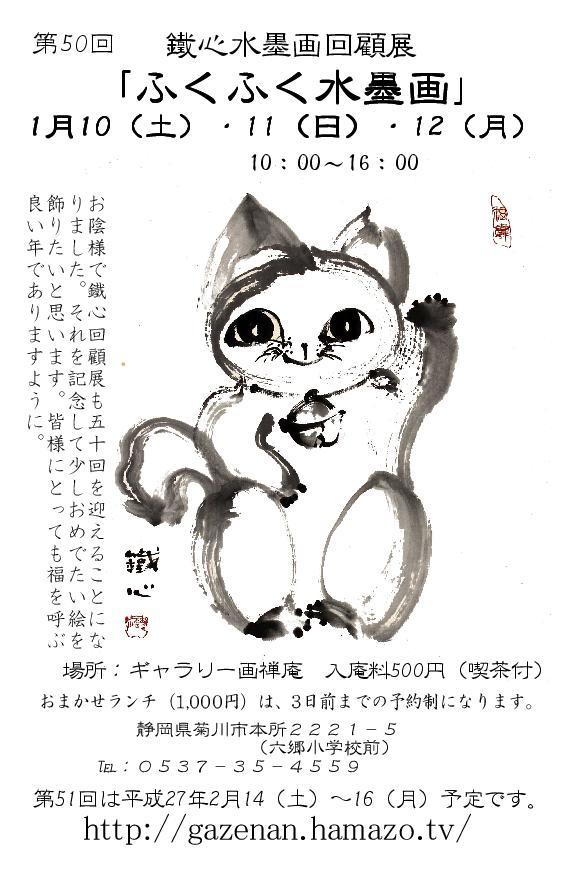 第50回　鐵心水墨画回顧展
「ふくふく水墨画」
1月10（土）・11（日）・12（月）
10：00～16：00
お陰様で鐵心回顧展も五十回を迎えることにな
りました。それを記念して少しおめでたい絵を
飾りたいと思います。皆様にとっても福を呼ぶ
良い年でありますように。
鐵心
場所：ギャラリー画禅庵　入庵料500円（喫茶付）
おまかせランチ（1,000円）は、3日前までの予約制になります。
静岡県菊川市本所２２２１－５
（六郷小学校前）
℡：０５３７－３５－４５５９
第51回は平成27年2月14（土）～16（月）予定です。
http://gazenan.hamazo.tv/